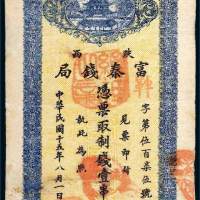 陝西
富秦錢局
字第位百柒位號
見票即付
憑票取制錢壹串
執此為照
中華民國十五年八月一日